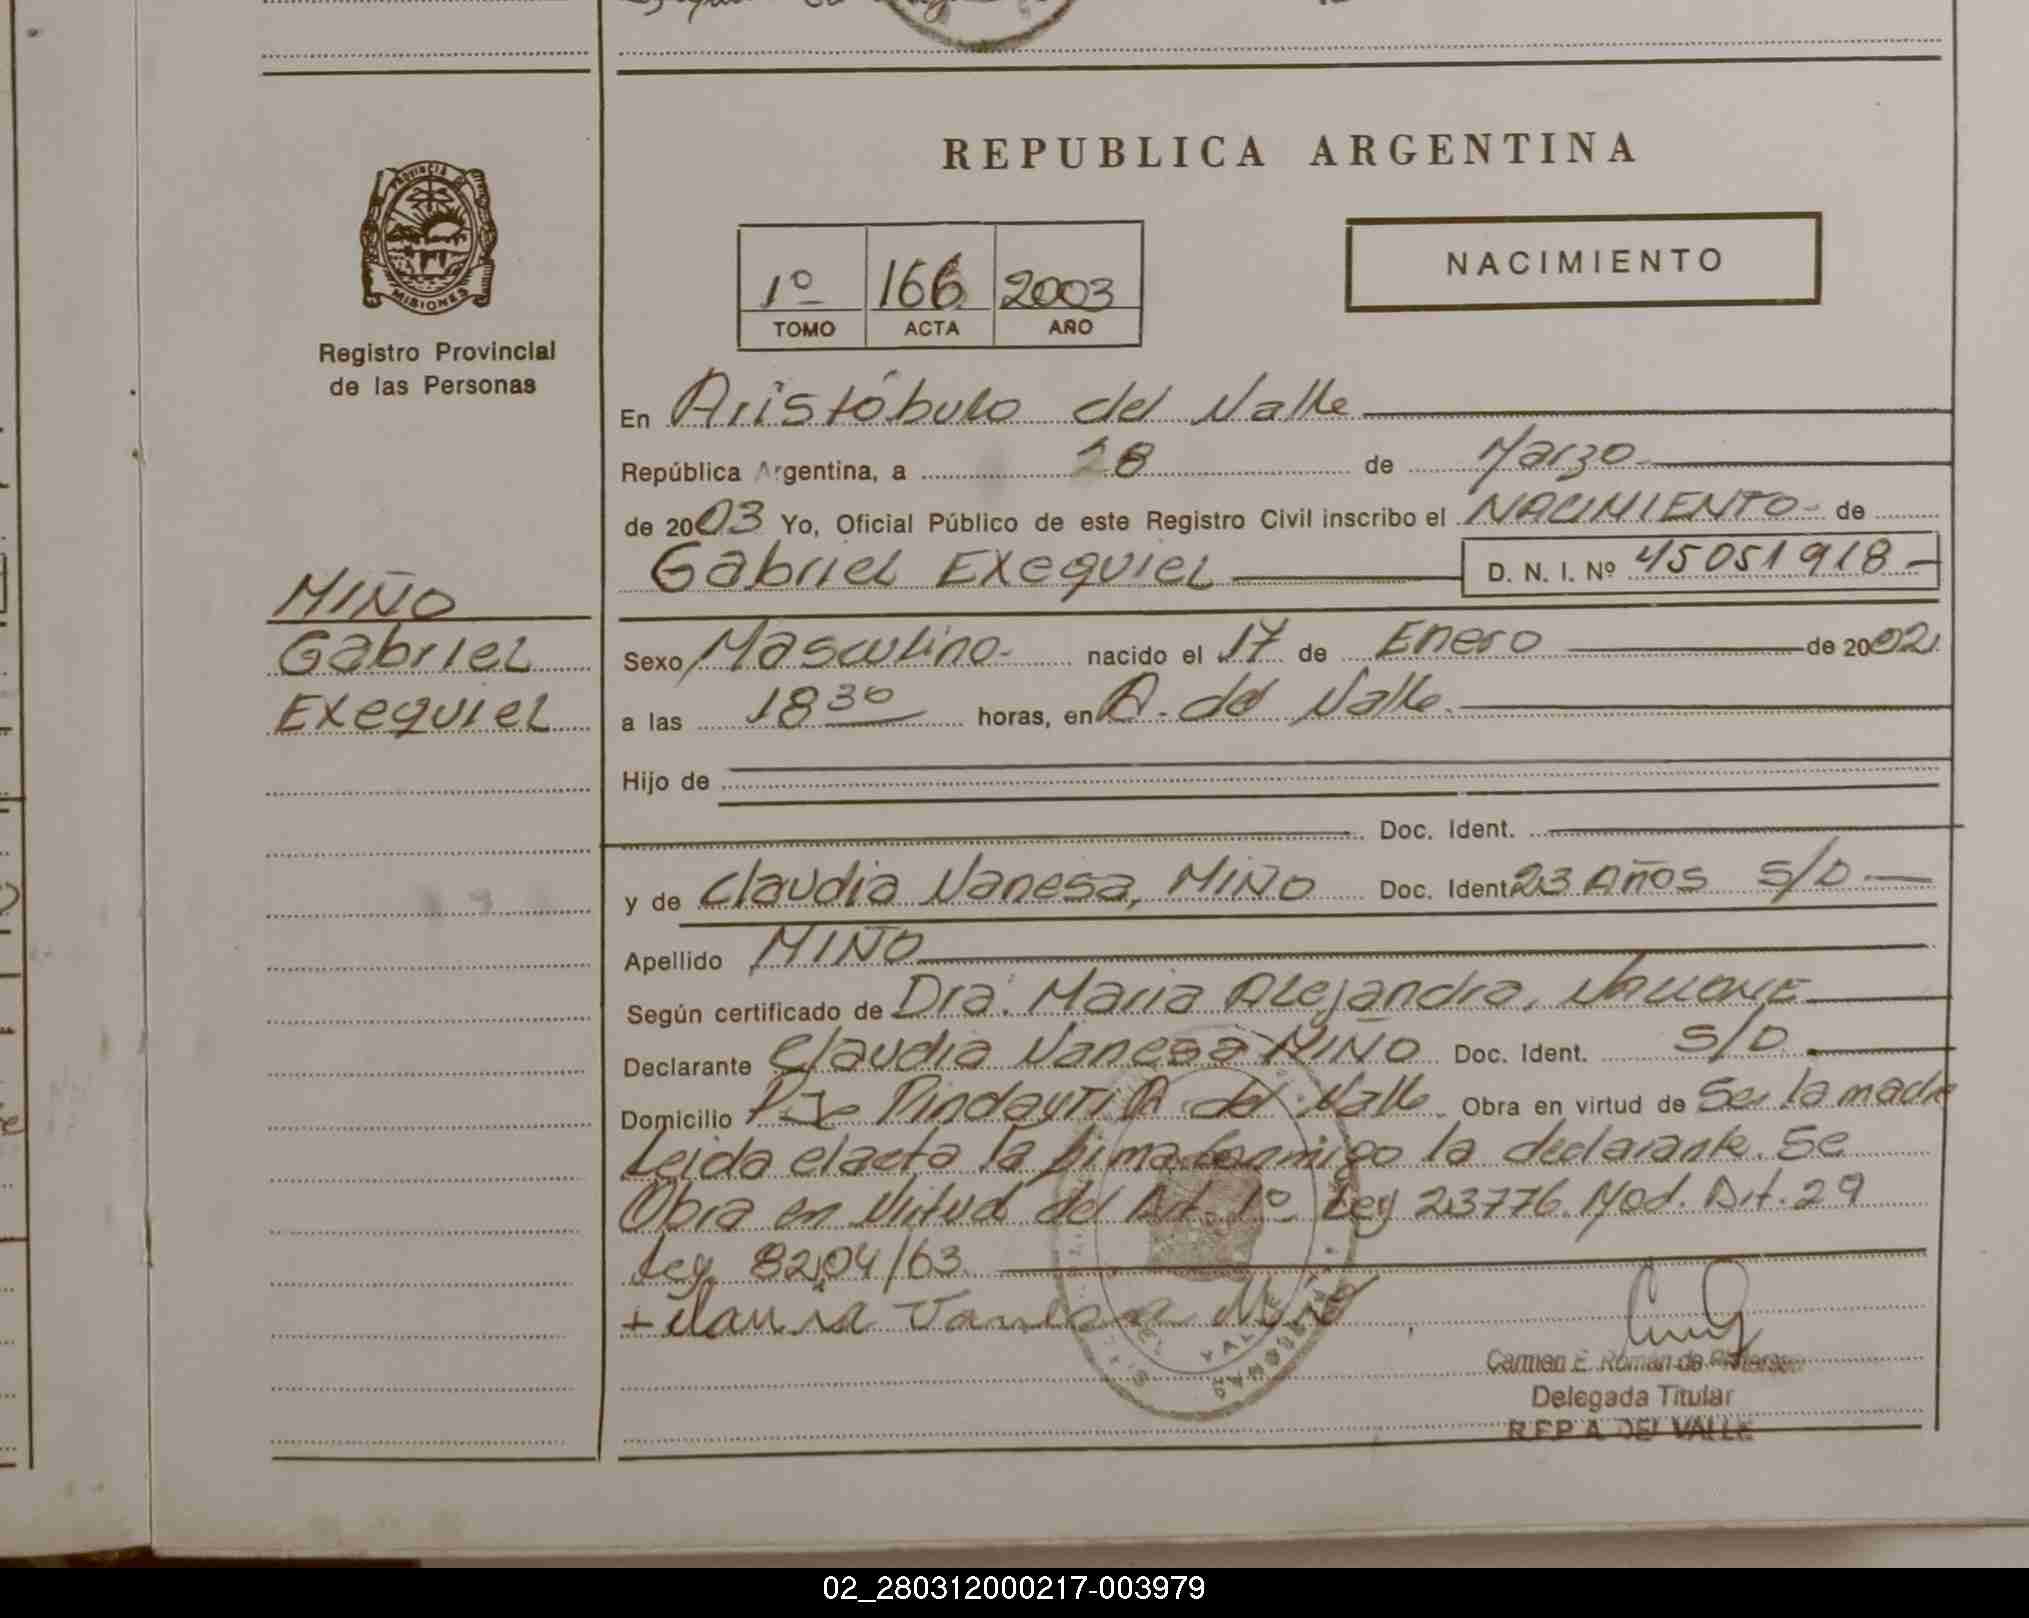 REPUBLICA ARGENTINA
PROVINCIA DE
MISIONES
Registro Provincial
de las Personas
1º 166 2003
TOMO ACTA AÑO
NACIMIENTO
En Aristóbulo del Valle
República Argentina, a 28 de Marzo
de 2003 Yo, Oficial Público de este Registro Civil inscribo el NACIMIENTO de
Gabriel Exequiel D. N. I. Nº 45051918
MIÑO
Gabriel
Exequiel
Sexo Masculino nacido el 17 de Enero de 2002
a las 18 30 horas, en A. del Valle
Hijo de
Doc. Ident.
y de Claudia Vanesa, MIÑO Doc. Ident 23 Años S/D
Apellido MIÑO
Según certificado de Dra. Maria Alejandra,
Declarante Claudia Vanesa MIÑO Doc. Ident. S/D
Domicilio Pindayti A del Valle Obra en virtud de Ser la madre
Leida el acta la firma conmigo la declarante. Se
Obra en Virtud del Art. 1º Ley 23776. Mod. Art. 29
Ley 8204/63
Claudia Vanesa Miño
Carmen E. Román de
Delegada Titular
R.P.P A DEL VALLE
02_280312000217-003979